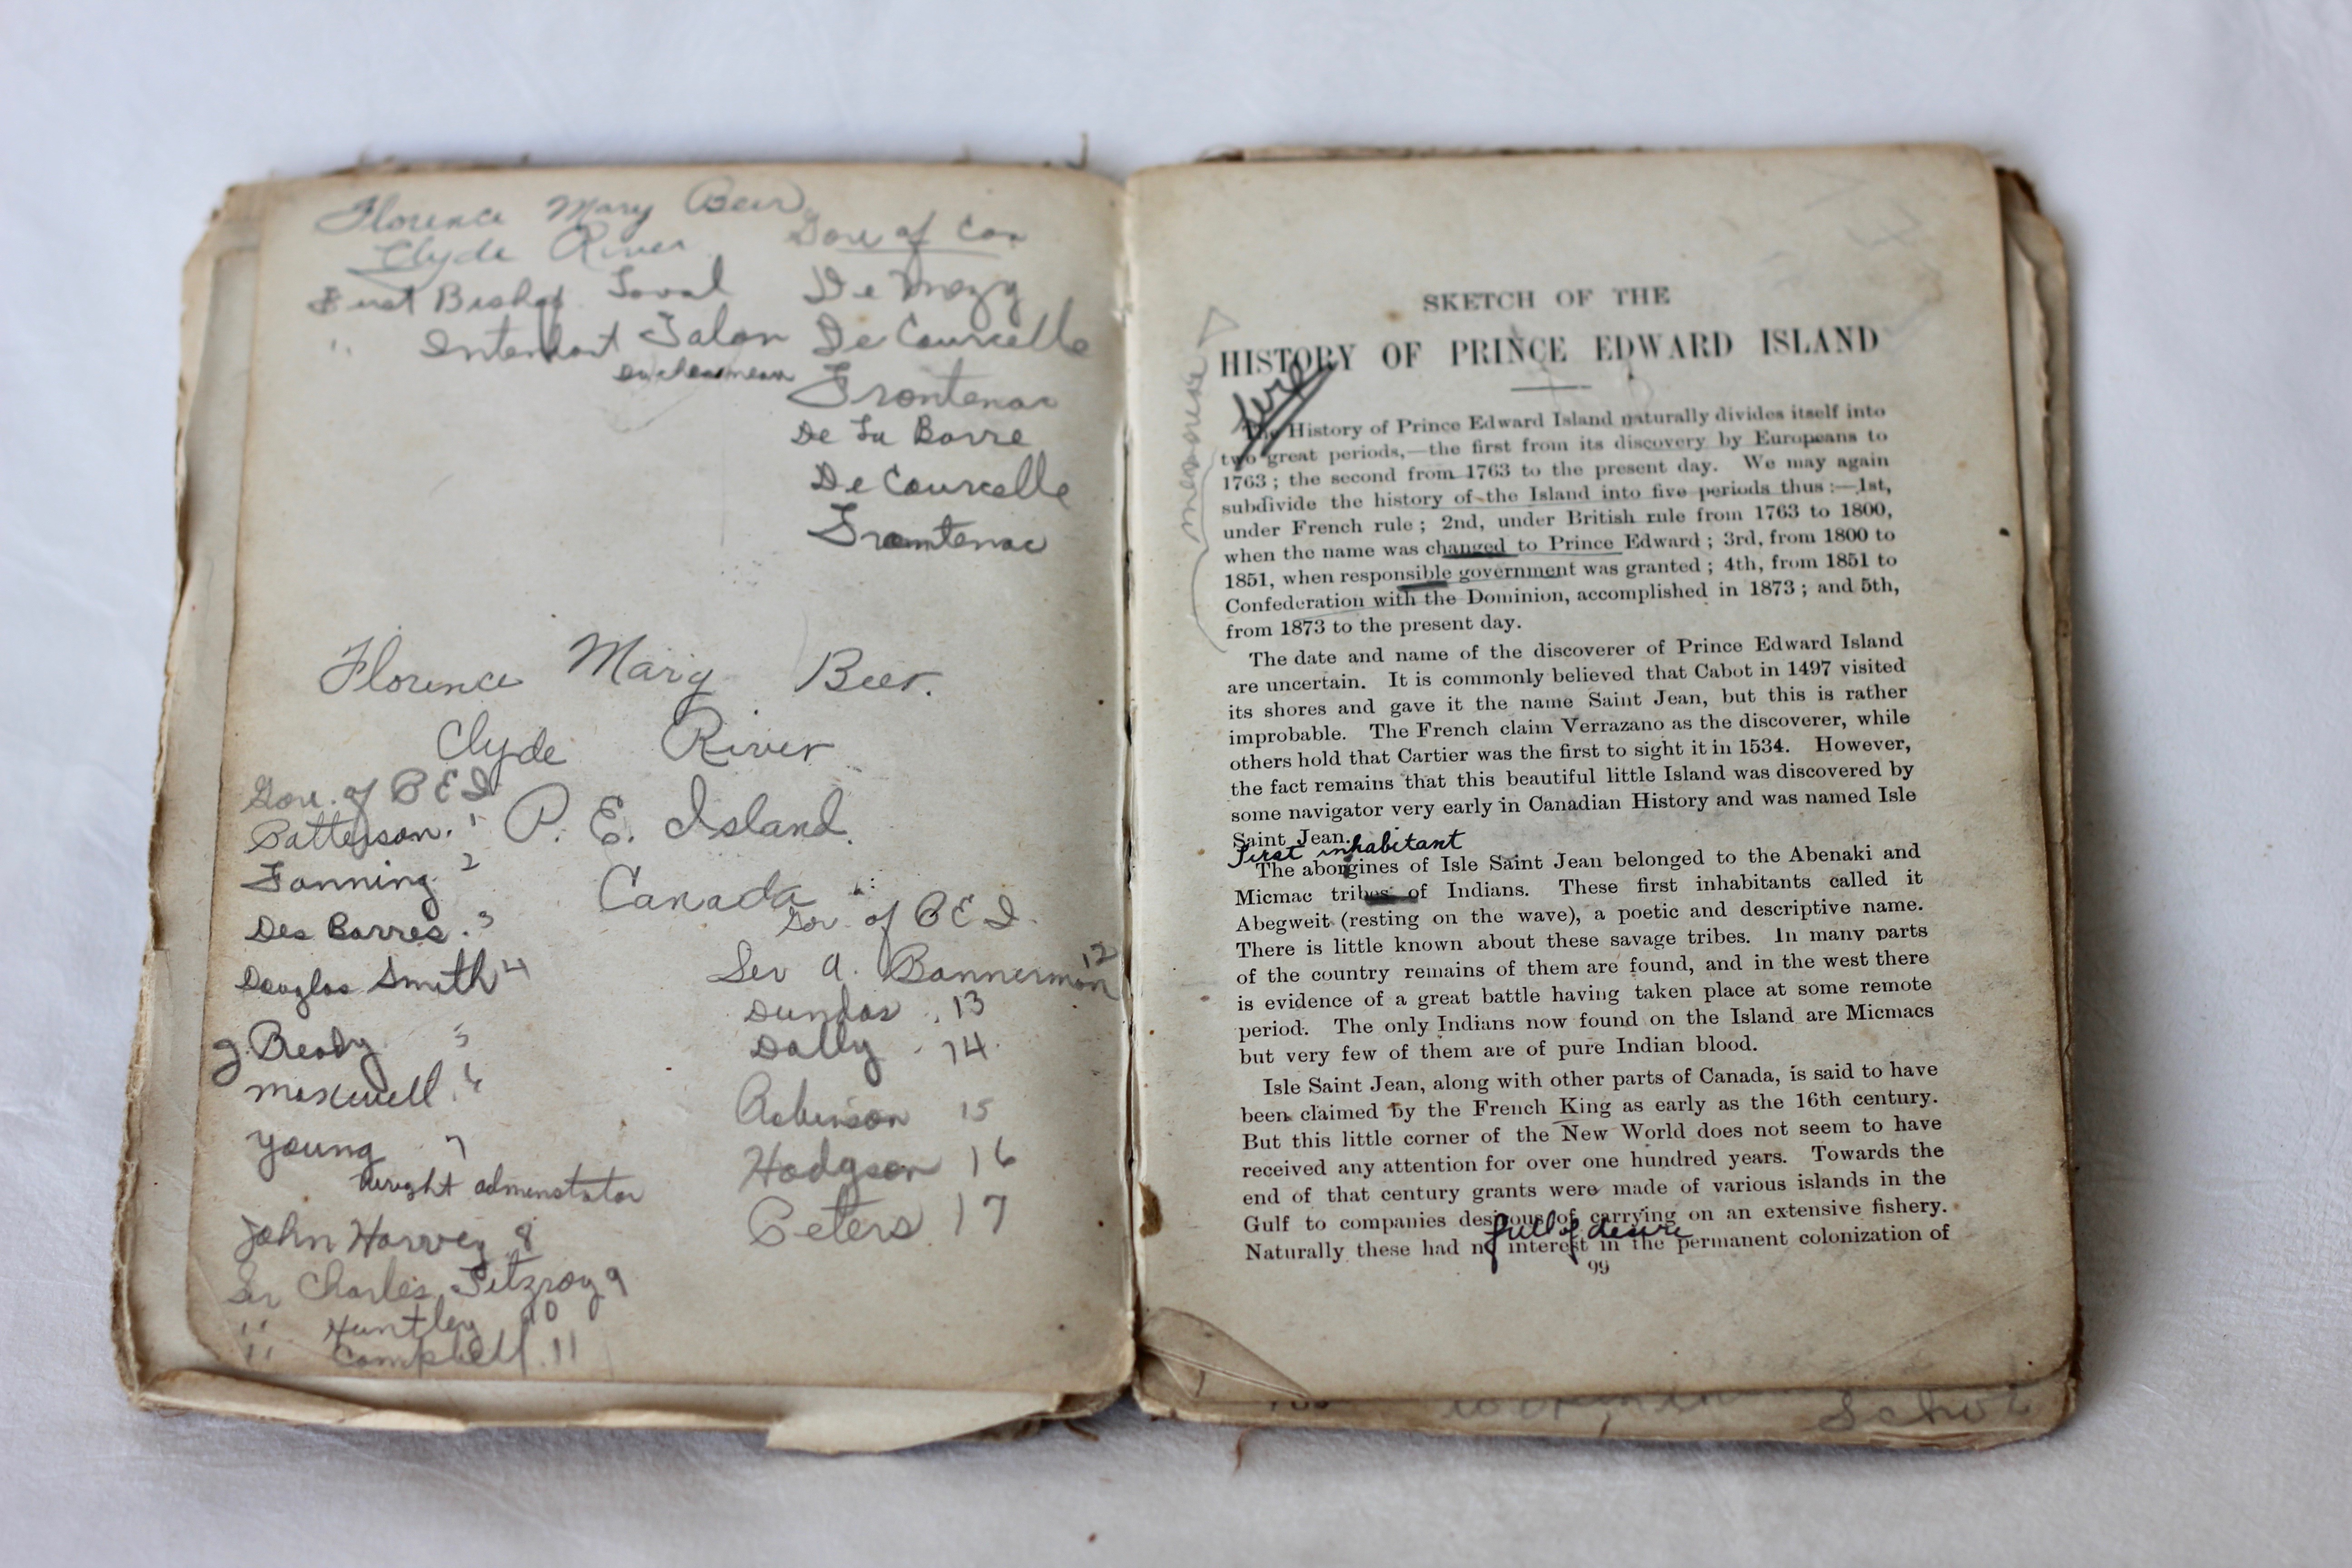 Florence Mary Beer
Clyde River
Gov of Can
First Bishop Laval
" Intendant Talon
De Mezy
De Courcelle
Frontenac
De La Barre
De Courcelle
Frontenac
Florence Mary Beer.
Clyde River
P. E. Island.
Canada
Gov. of P E I
Patterson. 1
Fanning 2
Des Barres. 3
Douglas Smith 4
J. Ready 5
Maxwell. 6
Young 7
Wright adminstator
John Harvey 8
Sir Charles Fitzroy 9
" Huntley 10
" Campbell. 11
Gov. of P E I.
Sir A. Bannerman 12
Dundas . 13
Dally . 14.
Robinson 15
Hodgson 16
Peters 17
SKETCH OF THE
HISTORY OF PRINCE EDWARD ISLAND
memorise
The History of Prince Edward Island naturally divides itself into
two great periods,—the first from its discovery by Europeans to
1763 ; the second from 1763 to the present day. We may again
subdivide the history of the Island into five periods thus :—1st,
under French rule ; 2nd, under British rule from 1763 to 1800,
when the name was changed to Prince Edward ; 3rd, from 1800 to
1851, when responsible government was granted ; 4th, from 1851 to
Confederation with the Dominion, accomplished in 1873 ; and 5th,
from 1873 to the present day.
The date and name of the discoverer of Prince Edward Island
are uncertain. It is commonly believed that Cabot in 1497 visited
its shores and gave it the name Saint Jean, but this is rather
improbable. The French claim Verrazano as the discoverer, while
others hold that Cartier was the first to sight it in 1534. However,
the fact remains that this beautiful little Island was discovered by
some navigator very early in Canadian History and was named Isle
Saint Jean.
first inhabitant
The aborigines of Isle Saint Jean belonged to the Abenaki and
Micmac tribes of Indians. These first inhabitants called it
Abegweit (resting on the wave), a poetic and descriptive name.
There is little known about these savage tribes. In many parts
of the country remains of them are found, and in the west there
is evidence of a great battle having taken place at some remote
period. The only Indians now found on the Island are Micmacs
but very few of them are of pure Indian blood.
Isle Saint Jean, along with other parts of Canada, is said to have
been claimed by the French King as early as the 16th century.
But this little corner of the New World does not seem to have
received any attention for over one hundred years. Towards the
end of that century grants were made of various islands in the
Gulf to companies desirous of carrying on an extensive fishery.
full of desire
Naturally these had no interest in the permanent colonization of
99